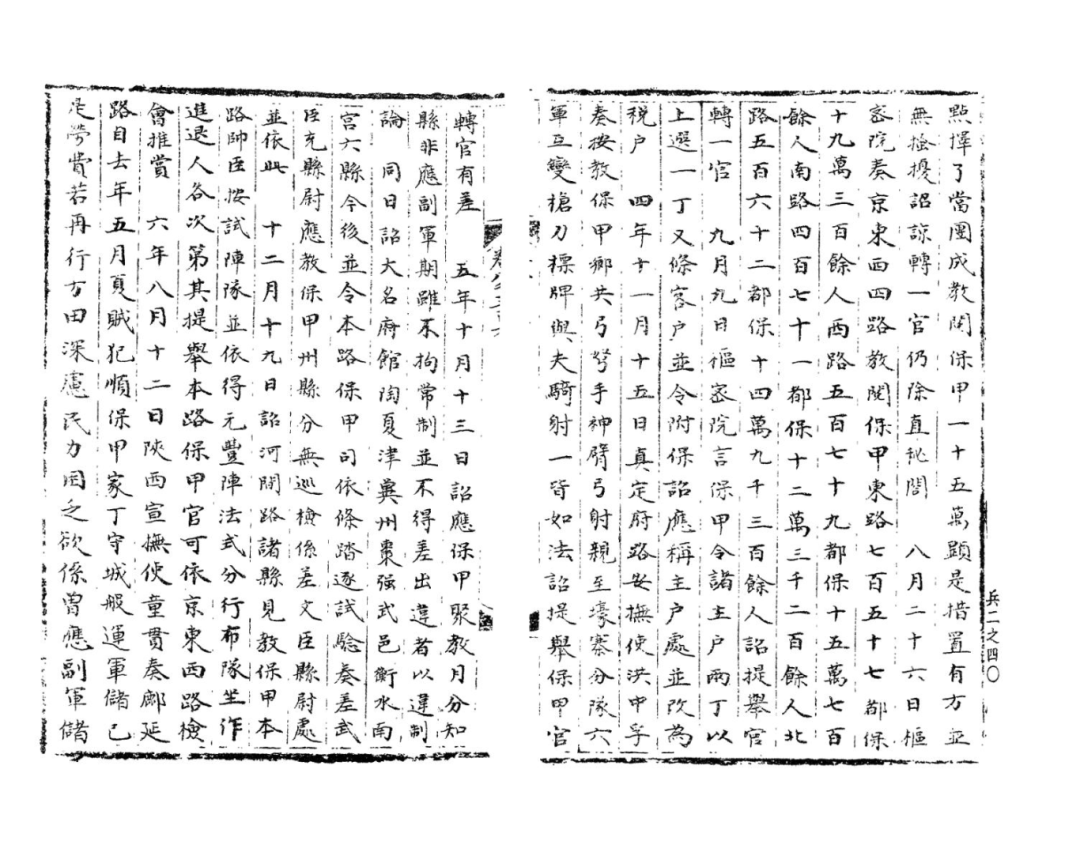 點擇了當團成教閱保甲一十五萬顯是措置有方並
無搔擾詔諒轉一官仍除直秘閣　八月二十六日樞
密院奏京東西四路教閱保甲東路七百五十七都保
十九萬三百餘人西路五百七十九都保十五萬七百
餘人南路四百七十一都保十二萬三千二百餘人北
路五百六十二都保十四萬九千三百餘人詔提舉官
轉一官　九月九日樞密院言保甲令諸主戶兩丁以
上選一丁又條客戶並令附保詔應稱主戶處並改為
稅戶　四年十一月十五日真定府路安撫使洪中孚
奏按教保甲鄉共弓弩手神臂弓射親至壕寨分隊六
軍互變槍刀標牌與夫騎射一皆如法詔提舉保甲官
兵二之四〇
轉官有差　五年十月十三日詔應保甲聚教月分知
縣非應副軍期雖不拘常制並不得差出違者以違制
論　同日詔大名府館陶夏津冀州棗強武邑衡水南
宮六縣今後並令本路保甲司依條踏逐試驗奏差武
臣充縣尉應教保甲州縣分無巡檢係差文臣縣尉處
並依此　十二月十九日詔河間路諸縣見教保甲本
路帥臣按試陣隊並依得元豐陣法式分行布隊坐作
進退人各次第其提舉本路保甲官可依京東西路檢
會推賞　六年八月十二日陝西宣撫使童貫奏鄜延
路自去年五月夏賊犯順保甲家丁守城般運軍儲已
是勞費若再行方田深慮民力困乏欲係曾應副軍儲